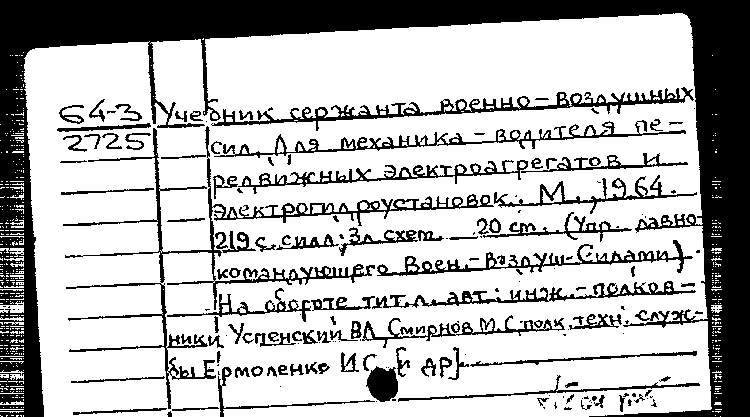 64-3 Учебник сержанта военно-воздушных
2725 сил. Для механика-водителя пе-
редвижных электроагрегатов и
электрогидроустановок. М., 1964.
219 с. с илл; 3 л схем. 20 см. (Упр. главно-
командующего Воен.-Воздуш-Силами)
На обороте тит. л. авт: инж.-полков-
ники Успенский В.Л, Смирнов М.С, полк. техн. служ-
бы Ермоленко И.С. [и др].